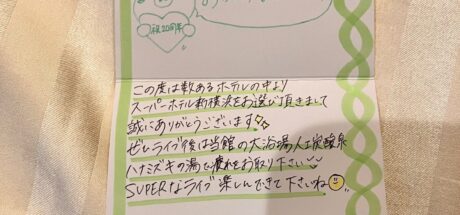 祝20周年
この度は数あるホテルの中より
スーパーホテル新横浜をお選び頂きまして
誠にありがとうございます
ぜひライブ後は当館の大浴場人工炭酸泉
ハナミズキの湯で疲れをお取り下さい
SUPERなライブ楽しんできて下さいね